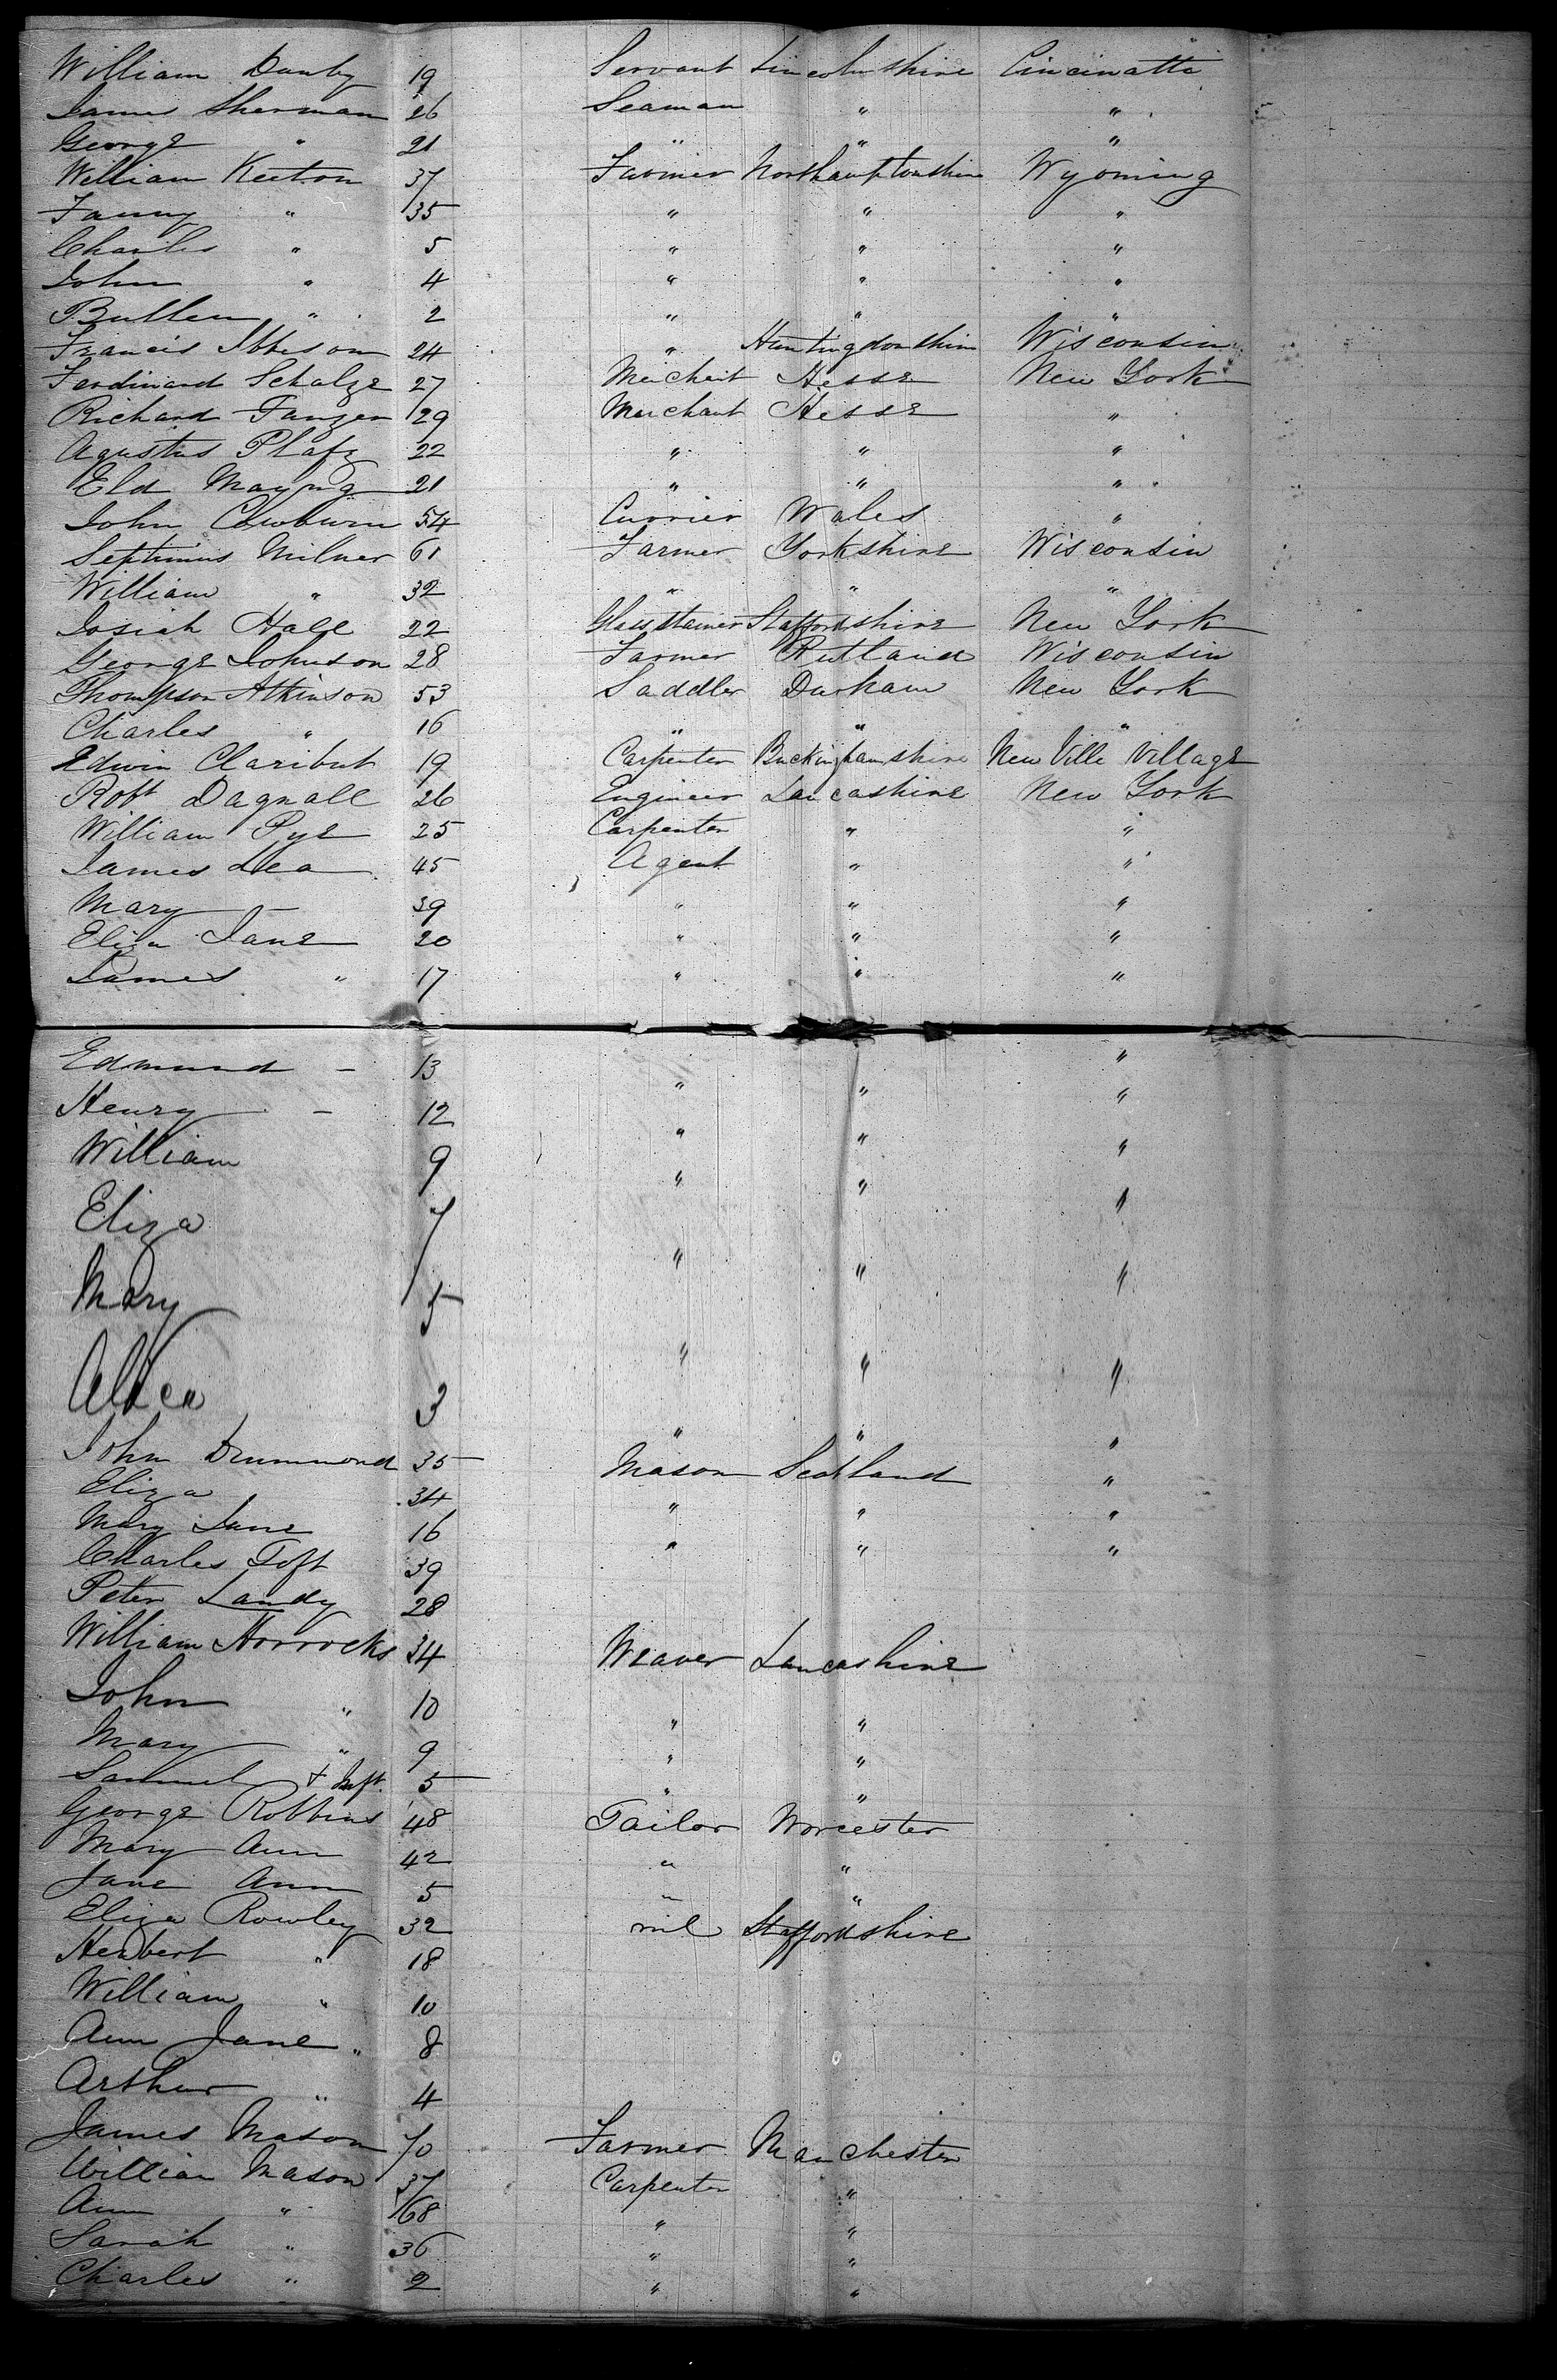 William Danby 19 Servant Lincolnshire Cincinatti
James Sherman 26 Seaman " "
George " 21 " " "
William Keeton 37 Farmer Northamptonshire Wyoming
Fanny " 35 " " "
Charles " 5 " " "
John " 4 " " "
Butlen " 2 " " "
Francis Ibbison 24 " Huntingdonshire Wisconsin
Ferdinand Schalze 27 Merchant Hesse New York
Richard Fanzen 29 Merchant Hesse "
Agustus Plafz 22 " " "
Eld 21 " " "
John Cowburn 54 Currier Wales "
Septimus Milner 61 Farmer Yorkshire Wisconsin
William " 32 " " "
Josiah Hall 22 Glasstainer Staffordshire New York
George Johnson 28 Farmer Rutland Wisconsin
Thompson Atkinson 53 Saddler Durham New York
Charles " 16 " " "
Edwin Claribut 19 Carpenter Buckinghamshire New Ville Village
Robt Dagnall 26 Engineer Lancashire New York
William Pye 25 Carpenter " "
James Lea 45 Agent " "
Mary — 39 " " "
Eliza Jane 20 " " "
James " 17 " " "
Edmund — 13 "
Henry — 12 " " "
William 9 " " "
Eliza 7 " " "
Mary 5 " " "
Alice 3 " " "
" " "
John Drummond 35 Mason Scotland "
Eliza 34 " " "
Mary Jane 16 " " "
Charles Toft 39
Peter Landy 28
William Horrocks 34 Weaver Lancashire
John " 10 " "
Mary " 9 " "
Samuel + Inft. 5 " "
George Robbins 48 Tailor Worcester
Mary Ann 42 " "
Jane Ann 5 " "
Eliza Rowley 32 nil Staffordshire
Herbert " 18
William " 10
Ann Jane " 8
Arthur " 4
James Mason 70 Farmer Manchester
William Mason 37 Carpenter "
Ann " 68 " "
Sarah " 36 " "
Charles " 2 " "